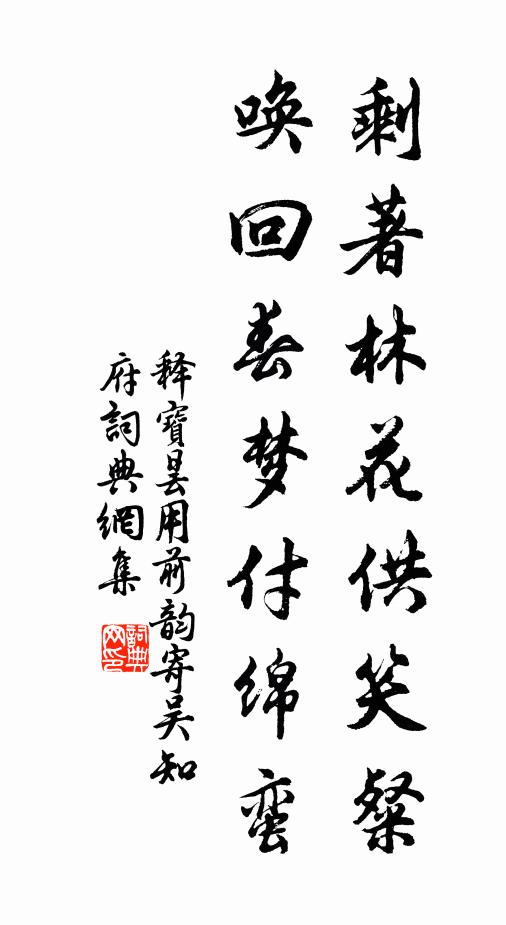 剩著林花供笑粲
唤回春梦付绵蛮
释寶曇用前韵寄吴知
府詞典網集
詞典网印